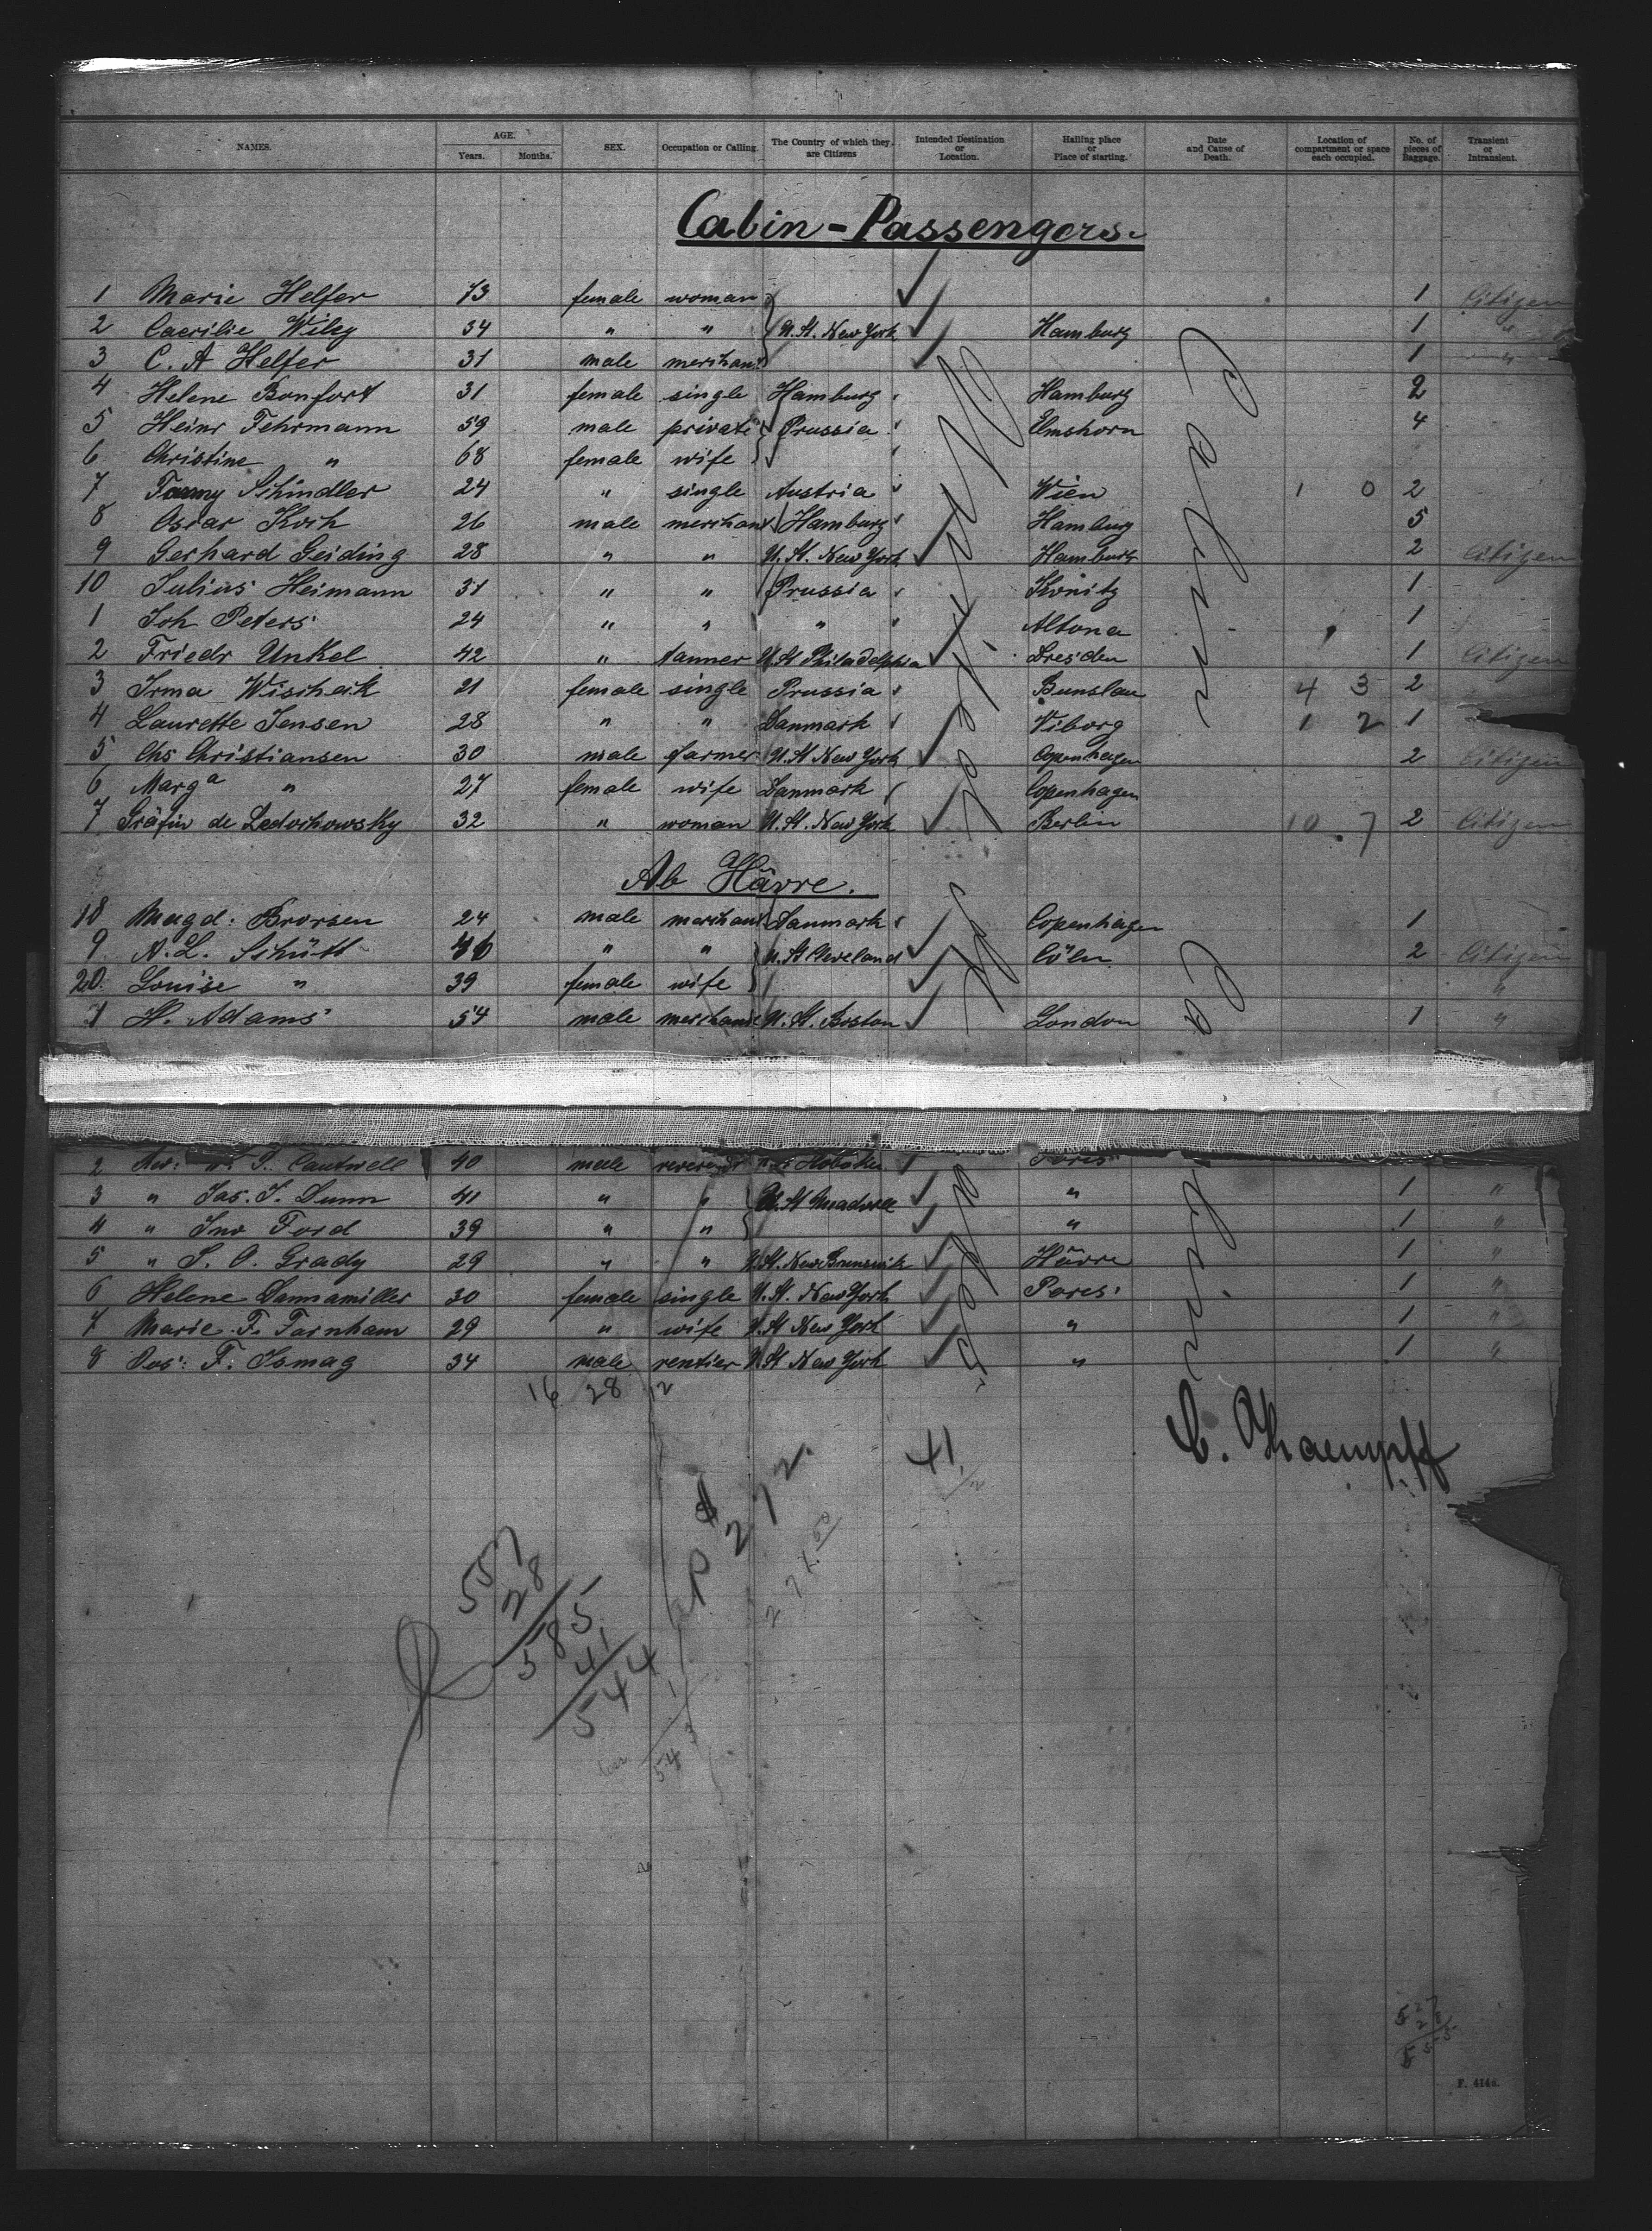 NAMES. AGE. Years. Months. SEX. Occupation or Calling. The Country of which they are Citizens Intended Destination or Location. Hailing place or Place of starting. Date and Cause of Death. Location of compartment or space each occupied. No. of pieces of Baggage. Transient or Intransient.
Cabin-Passengers.
1 Marie Helfer 73 female woman 1 Citizen
2 Caecilie Wiley 34 " " U. St. New York Hamburg 1 "
3 C. A Helfer 31 male merchant 1 "
4 Helene Bonfort 31 female single Hamburg Hamburg 2
5 Heinr Fehrmann 59 male private Prussia Elmshorn 4
6 Christine " 68 female wife
7 Fanny Schindler 24 " single Austria Wien 1 0 2
8 Oscar Koch 26 male merchant Hamburg Hamburg 5
9 Gerhard Geiding 28 " " U. St. New York Hamburg 2 Citizen
10 Julius Heimann 31 " " Prussia Konitz 1
1 Joh Peters 24 " " " Altona 1
2 Friedr Unkel 42 " tanner U. St Philadelphia Dresden 1 Citizen
3 Irma Wischeik 21 female single Prussia Bunslau 4 3 2
4 Laurette Jensen 28 " " Danmark Viborg 1 2 1
5 Chs Christiansen 30 male farmer U. St New York Copenhagen 2 Citizen
6 Marga " 27 female wife Danmark Copenhagen
7 Gräfin de Ledochowsky 32 " woman U. St. New York Berlin 10 7 2 Citizen
Ab Hâvre.
18 Magd. Brorsen 24 male merchant Danmark Copenhagen 1
9 A. L. Schütt 46 " " U. St Cleveland Cöln 2 Citizen
20. Louise " 39 female wife "
1 H. Adams 54 male merchant U. St. Boston London 1 "
2 Rev: P. Cantwell 40 male Hoboken Paris
3 " Jas. J. Dunn 41 " " U. St " 1 "
4 " Jno Ford 39 " " " 1 "
5 " S. O. Grady 29 " " U. St. New Brunswik Hâvre 1 "
6 Helene Dannamiller 30 female single U. St. New York Pares 1 "
7 Marie F. Farnham 29 " wife U. St New York " 1 "
8 F. Ismag 34 male rentier U. St New York " 1 "
16 28 12
41
C. Kaempff
$ 272.
557
28
585
41
544
1
543
527
28
555
F. 414a.